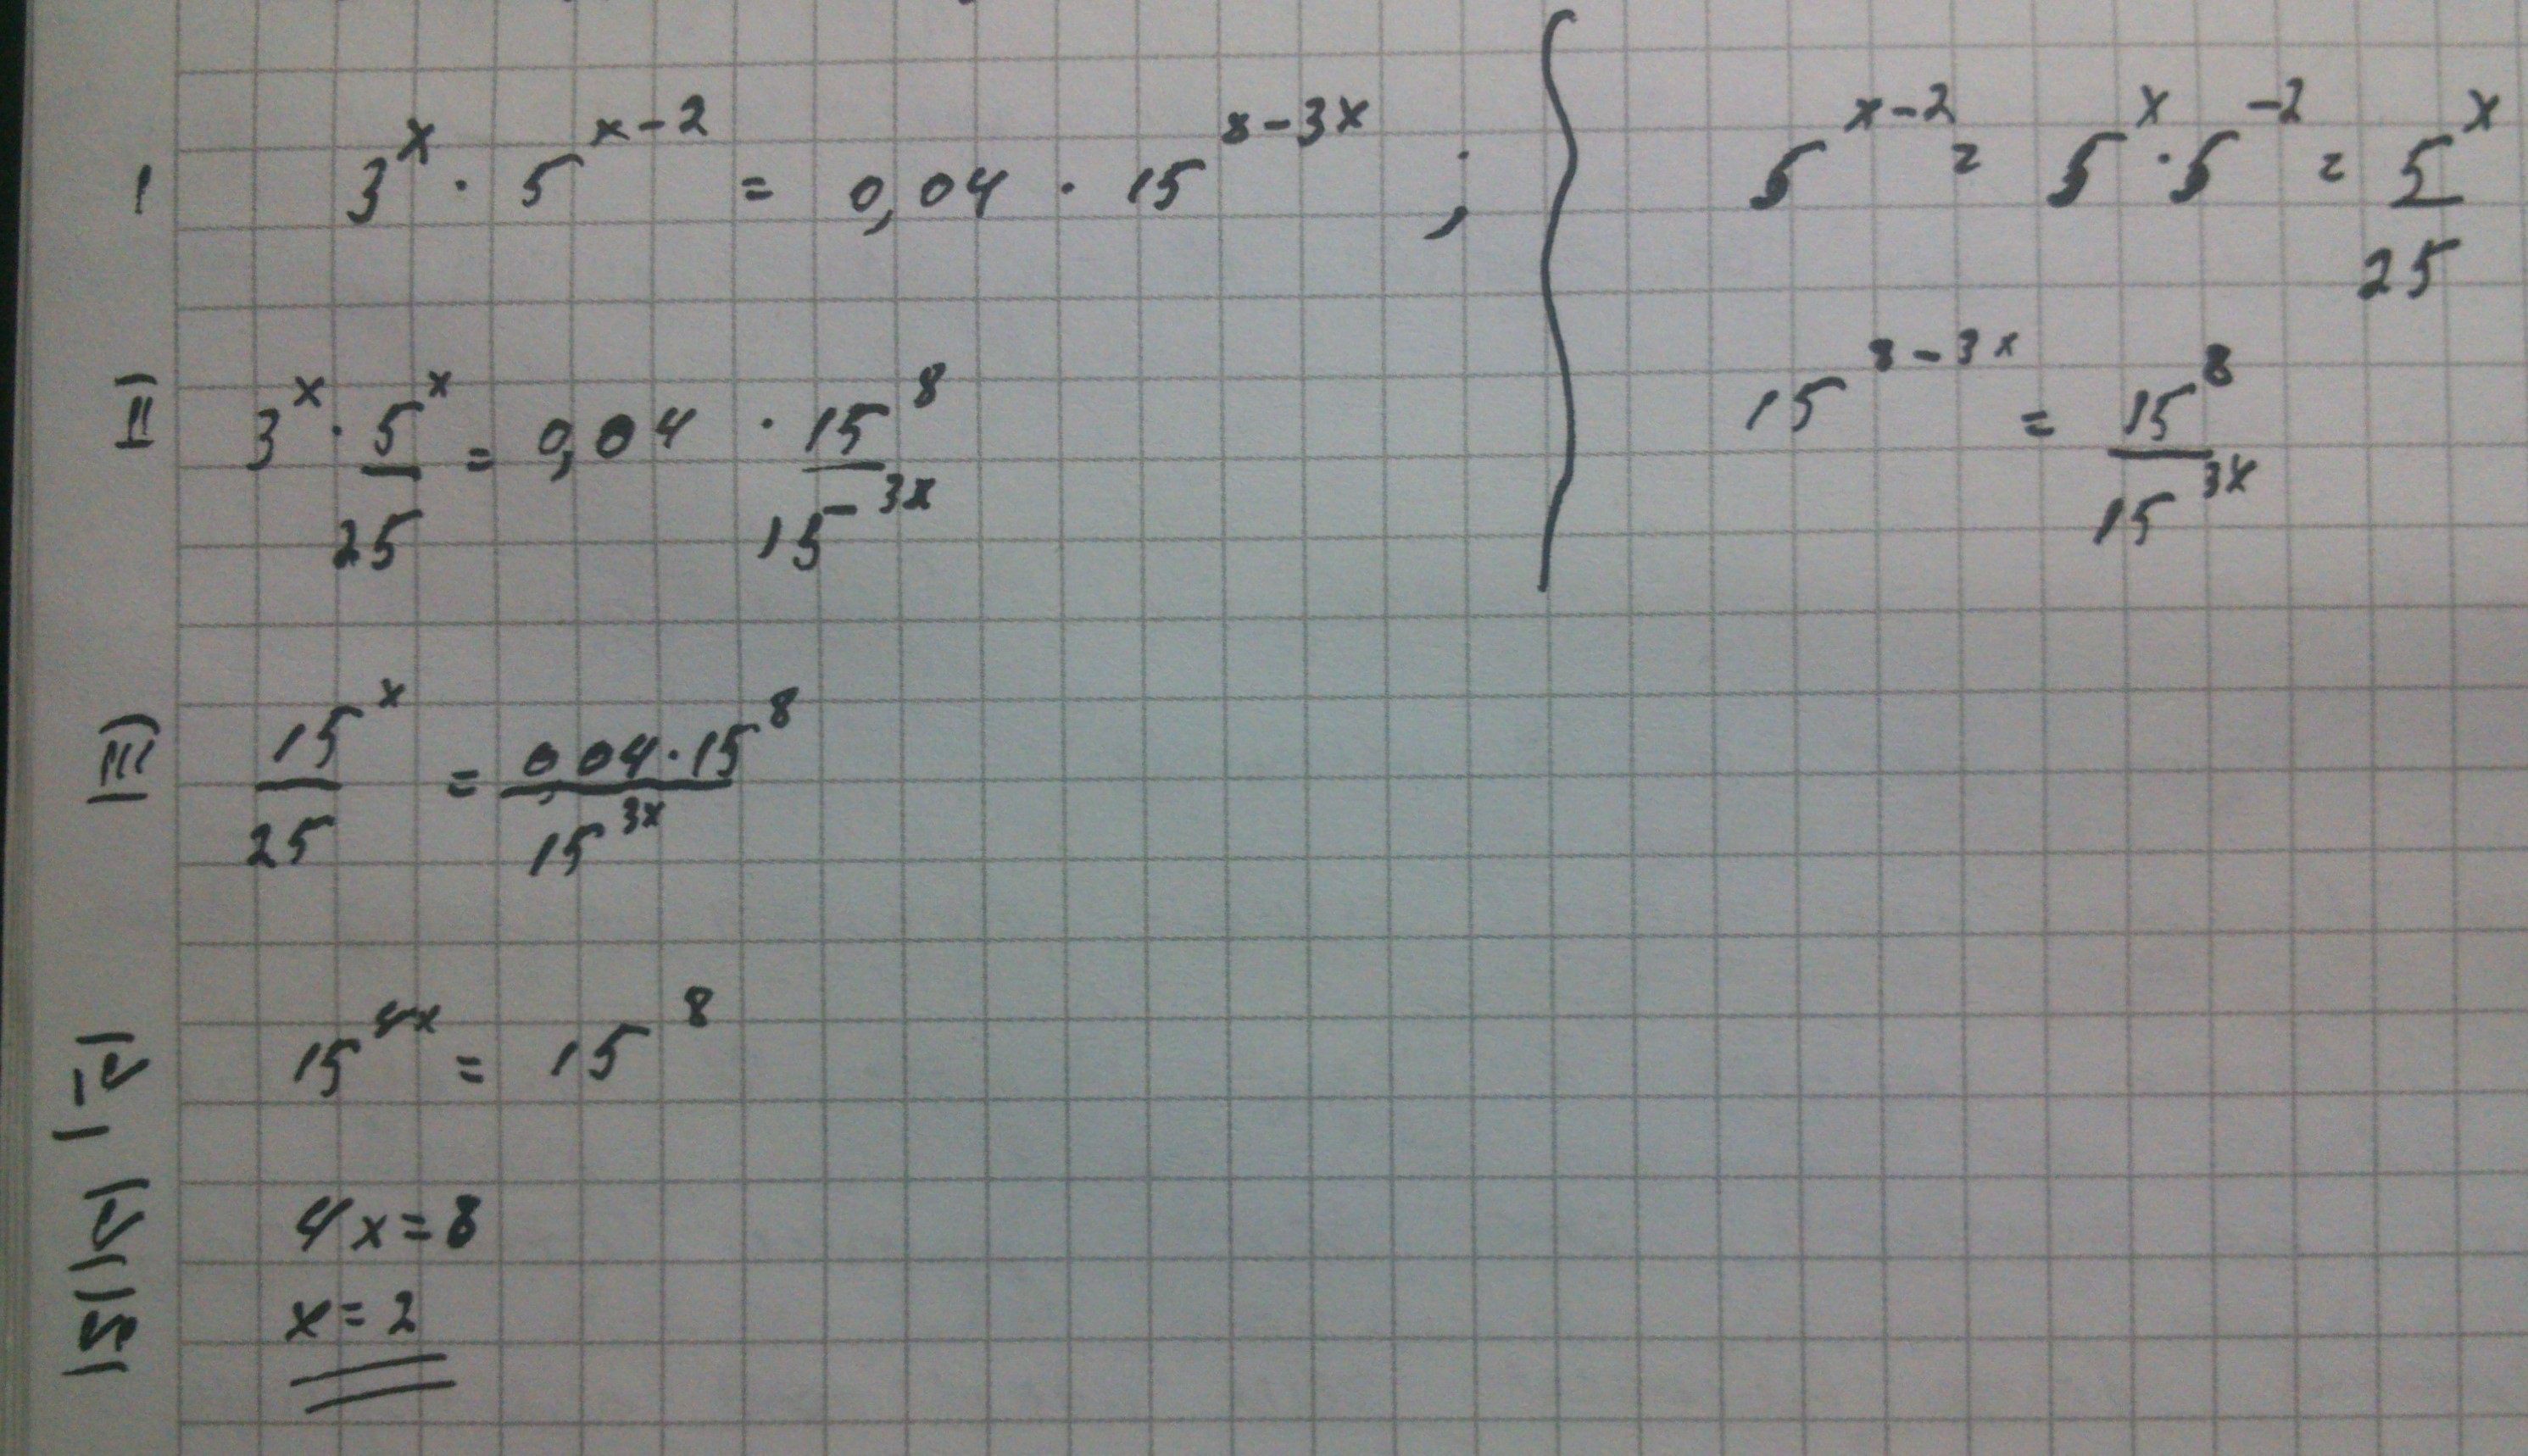 I 3^x · 5^(x-2) = 0,04 · 15^(8-3x) ;
5^(x-2) = 5^x · 5^(-2) = 5^x/25
15^(8-3x) = 15^8/15^(3x)
II) 3^x · 5^x/25 = 0,04 · 15^8/15^(-3x)
III) 15^x/25 = 0,04·15^8/15^(3x)
IV 15^(4x) = 15^8
V 4x=8
VI x=2